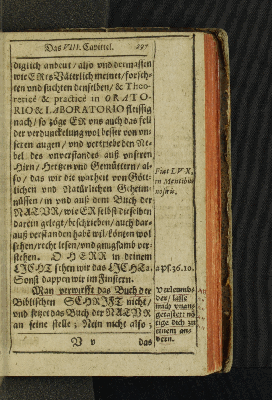 Das VIII. Capittel. 297
diglich andeut / also und dermassen
wie ER es Väterlich meinet / forsche-
ten und suchten denselben / & Theo-
reticè & practicè in ORATO-
RIO & LABORATORIO fleissig
nach / so zöge ER uns auch das fell
der verdunckelung wol besser von un-
seren augen / und vertriebe den Ne-
bel des unverstandes auß unseren
Hirn / Hertzen und Gemüttern / al-
so / das wir die warheit von Gött-
lichen und Natürlichen Geheim-
nüssen / in und auß dem Buch der
NATUR / wie ER selbst dieselben
darein gelegt / beschrieben / auch dar-
auß verstanden habē wil / können wol
sehen / recht lesen / und gnugsamb ver-
stehen. O HERR in deinem
LICHT sehen wir das LICHT a.
Sonst dappen wir im Finstern.
Man verwirfft das Buch der
Biblischen SCHRIFT nicht /
und setzet das Buch der NATUR
an seine stelle; Nein nicht also;
V v das
Fiat LUX,
in Mentibus
nostris.
a ps. 36. 10.
Verleumb-
der / lasse
mich unan-
getastet; nö-
tige dich zu
einem an-
dern.